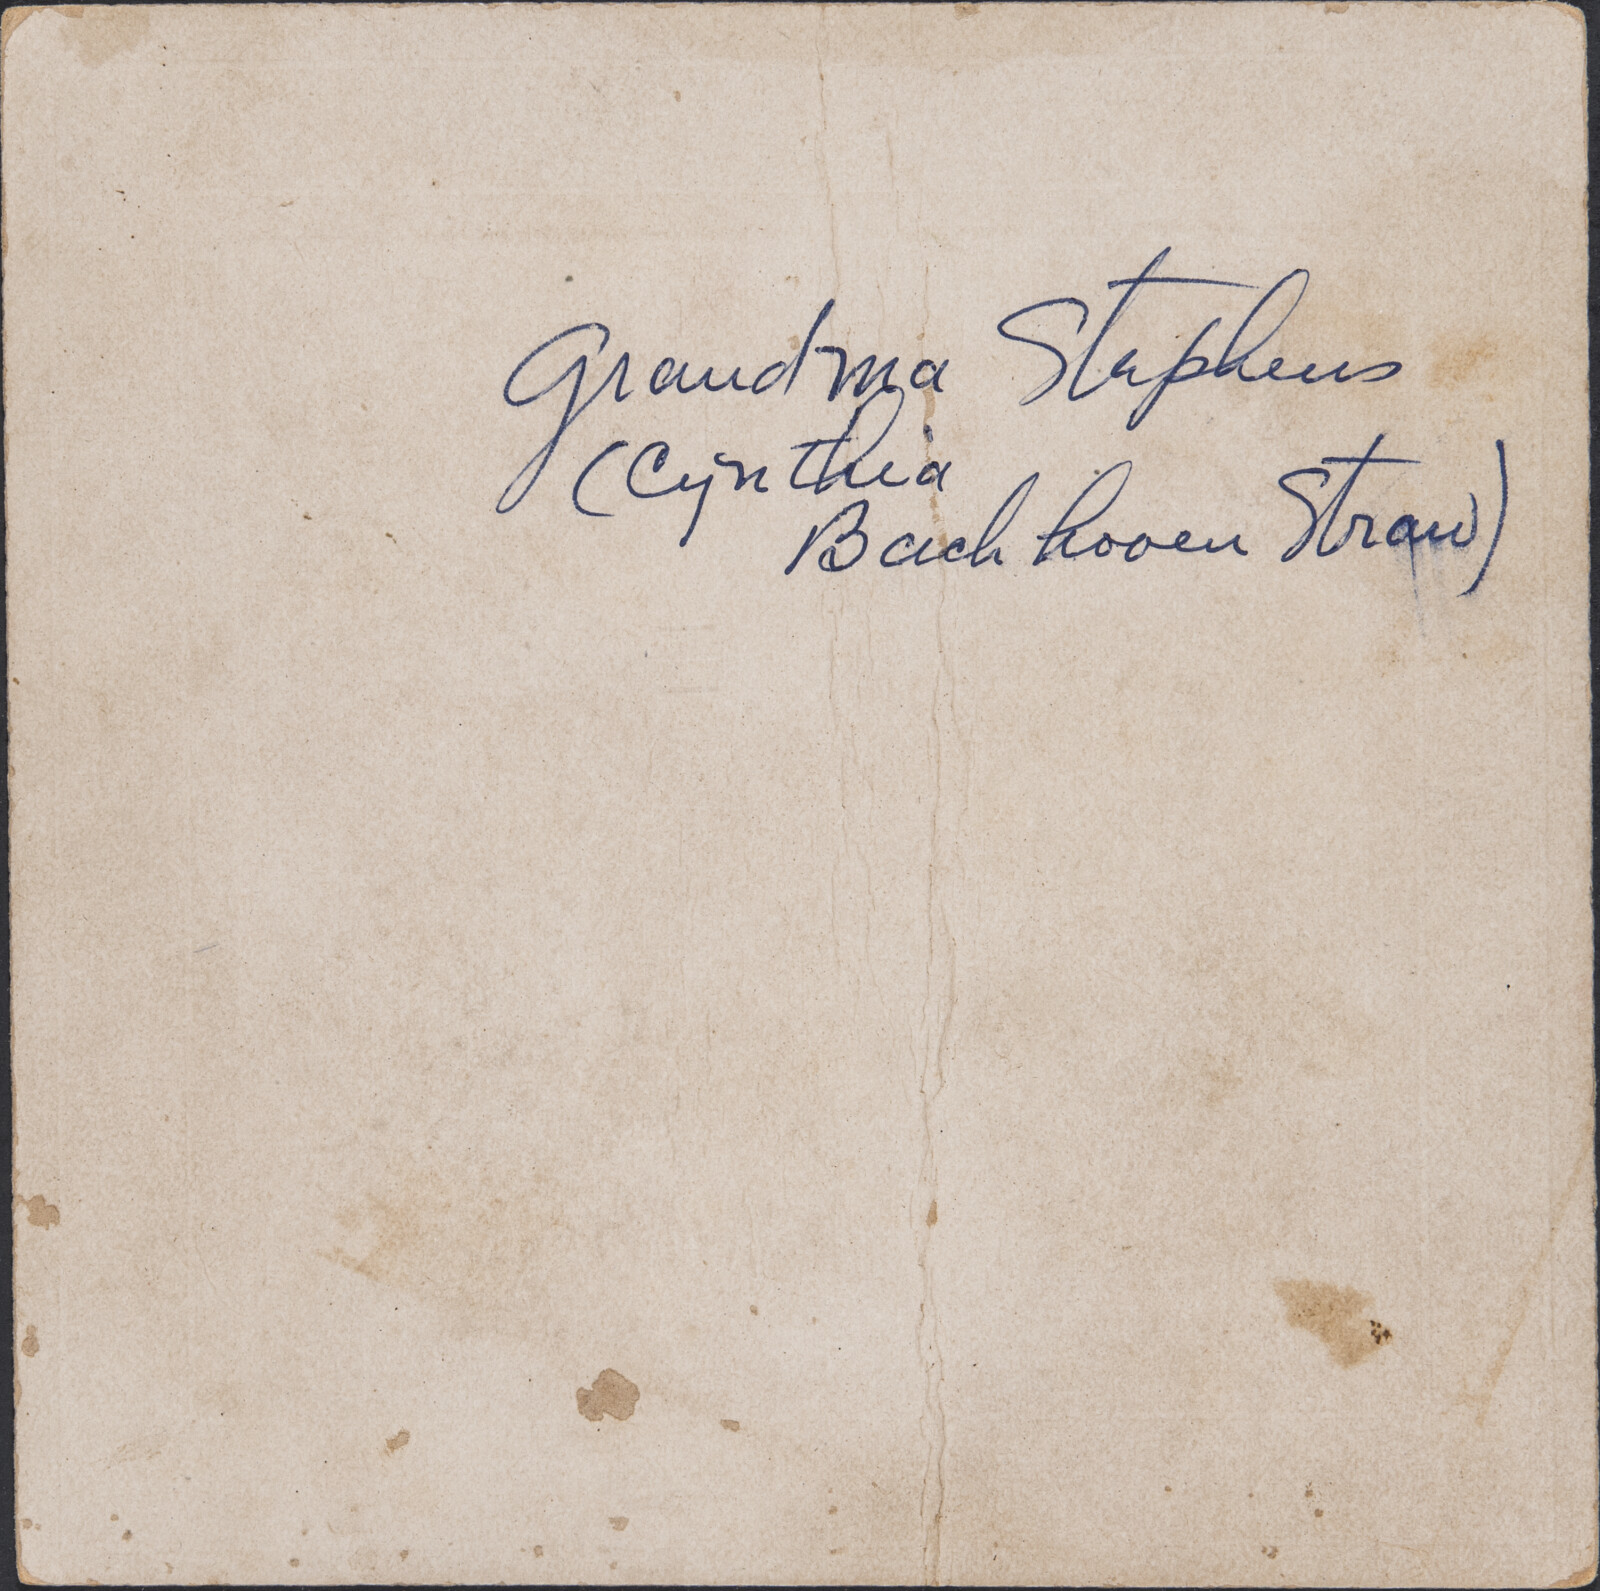 Grandma Stephens
(Cynthia
Bachhoven Straw)